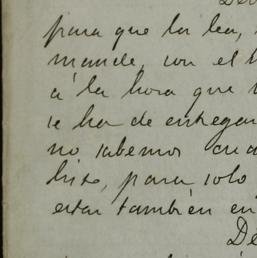 para que la lea,
mande, con el
á la hora que
se ha de entregar
no sabemos
para solo
estar también en
De